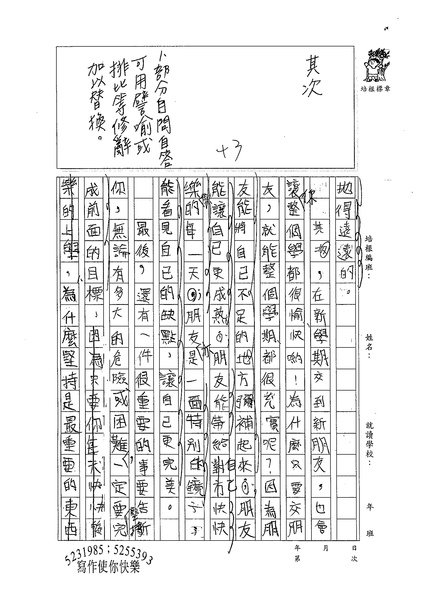 培根標章
其次
+3
卜部分自問自答
可用譬喻或
排比等修辭
加以替換。
培根編班：
姓名：
就讀學校：
年 班
年 月 日
第 次
地得遠遠的。
其次，在新學期交到新朋友，也會
讓整個學都很愉快喲！為什麼只要交朋
友，就能整個學期都很充實呢？因為朋
友能將自己不足的地方彌補起來，朋友
能讓自己更成熟，朋友能等給對方快快
樂的每一天，朋友是一面特別的鏡子，
能看見自己的缺點，讓自己更完美。
最後，還有一件很重要的事要告訴
你，無論有多大的危險或困難一定要完
成前面的目標，因為只要你每天快快樂
樂的上學，為什麼堅持是最重要的東西
你
亦
自己
5231985；5255393
寫作使你快樂